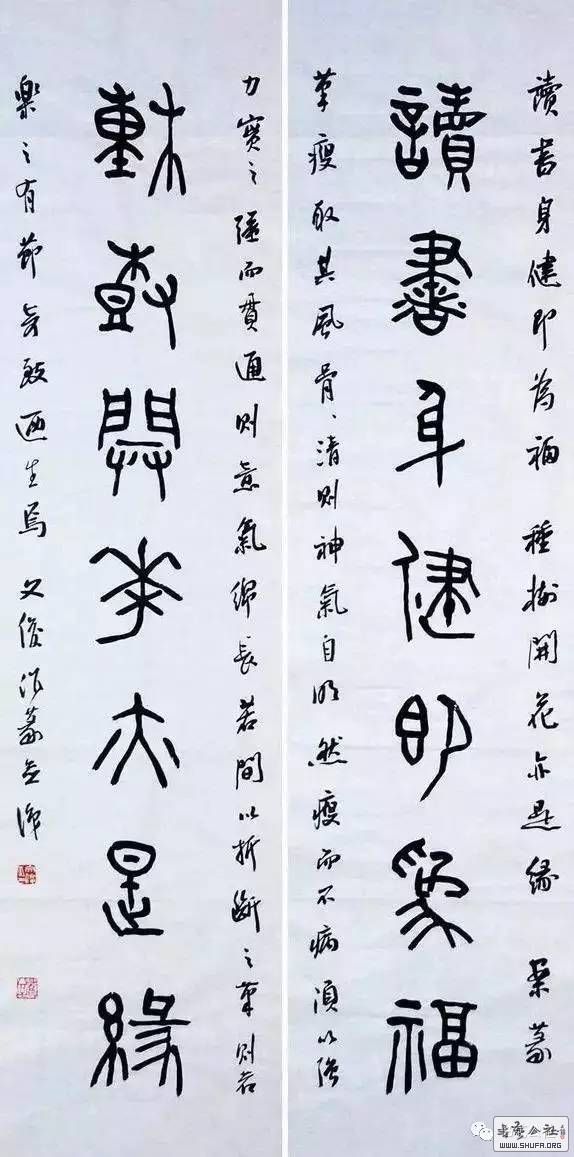 讀書身健即為福 種樹開花亦是緣 集篆
讀書身健即為福
筆瘦取其風骨、清則神氣自明然瘦而不病須以強
力實之強而貫通則意氣綿長若間以折斷之筆則若
種樹開花亦是緣
樂之有節奇致迺生焉 文俊作篆並識
書藝公社
WWW.SHUFA.ORG